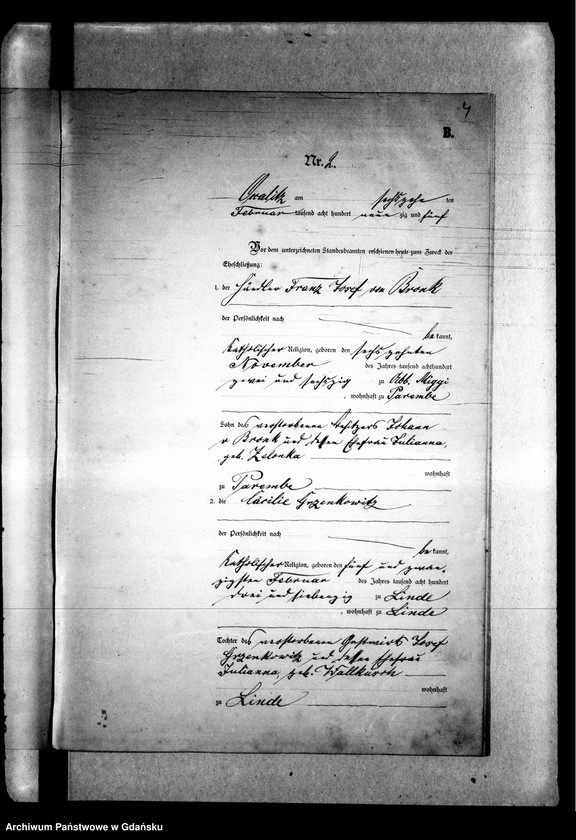 4
B.
Nr. 2.
Gralitz am sechszehn ten
Februar tausend acht hundert neun zig und fünf
Vor dem unterzeichneten Standesbeamten erschienen heute zum Zweck der
Eheschließung:
1. der Händler Franz Josef von Bronk
der Persönlichkeit nach
be kannt,
katholischer Religion, geboren den sechszehnten
November des Jahres tausend achthundert
zwei und sechszig zu Abb. Miggi
, wohnhaft zu Parembe
Sohn des verstorbenen Besitzers Johann
v Bronk und dessen Ehefrau Julianna,
geb. Zelonka
wohnhaft
zu Parembe
2. die Cäcilie Grzenkowitz
der Persönlichkeit nach
be kannt,
katholischer Religion, geboren den fünf und zwan-
zigsten Februar des Jahres tausend acht hundert
drei und siebenzig zu Linde
, wohnhaft zu Linde
Tochter des verstorbenen Gastwirts Josef
Grzenkowitz und dessen Ehefrau
Julianna, geb. Wallkusch
wohnhaft
zu Linde
Archiwum Państwowe w Gdańsku